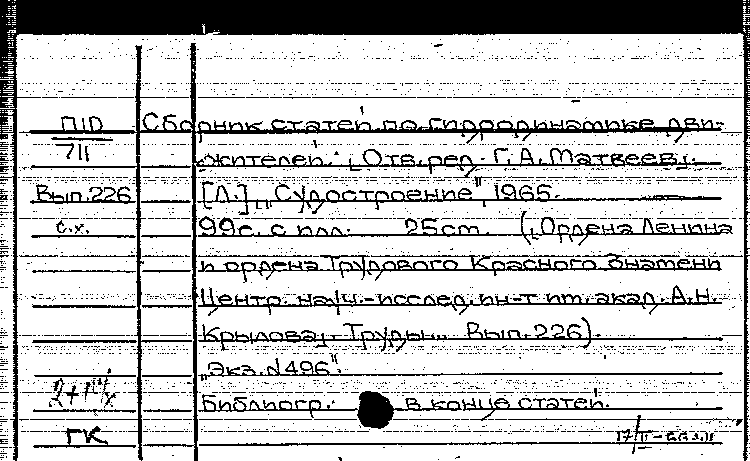 П10 Сборник статей по гидродинамике дви-
711 жителей. [Отв. ред. Г. А. Матвеев].
Вып. 226 [Л.], "Судостроение", 1965.
с.х. 99 с. с илл. 25 см. ([Ордена Ленина
и ордена Трудового Красного Знамени
Центр. науч.-исслед. ин-т им. акад. А.Н.
Крылова]. Труды... Вып. 226).
"Экз. №496".
2+1 Библиогр. в конце статей.
ГК